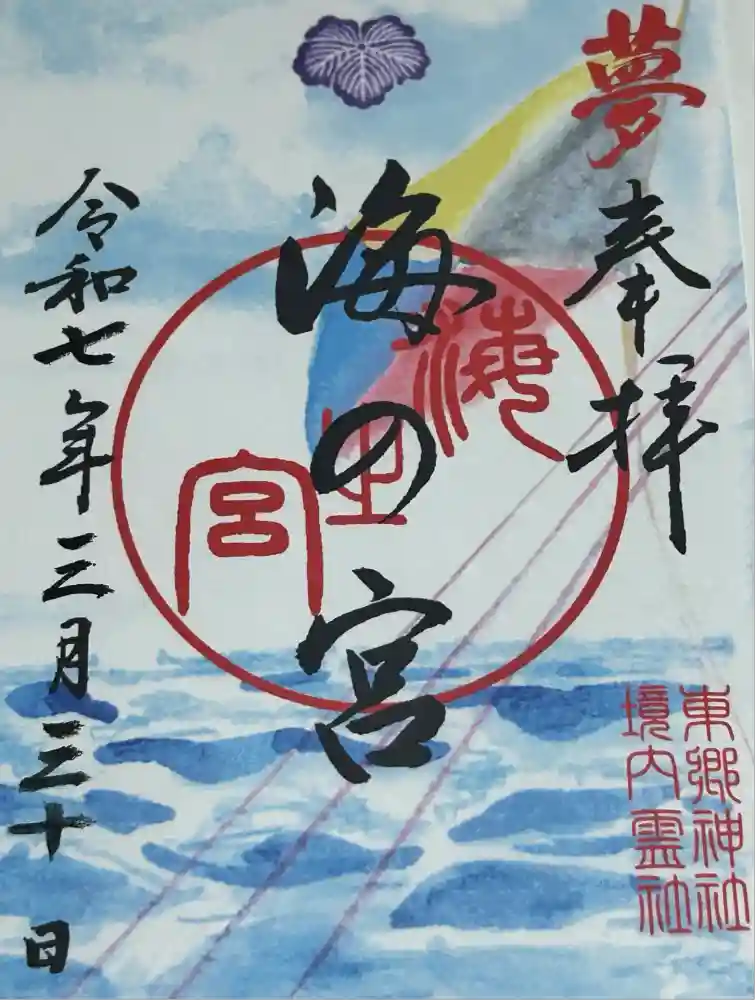 夢
奉拝
海の宮
海之宮
令和七年三月三十日
東郷神社
境内霊社